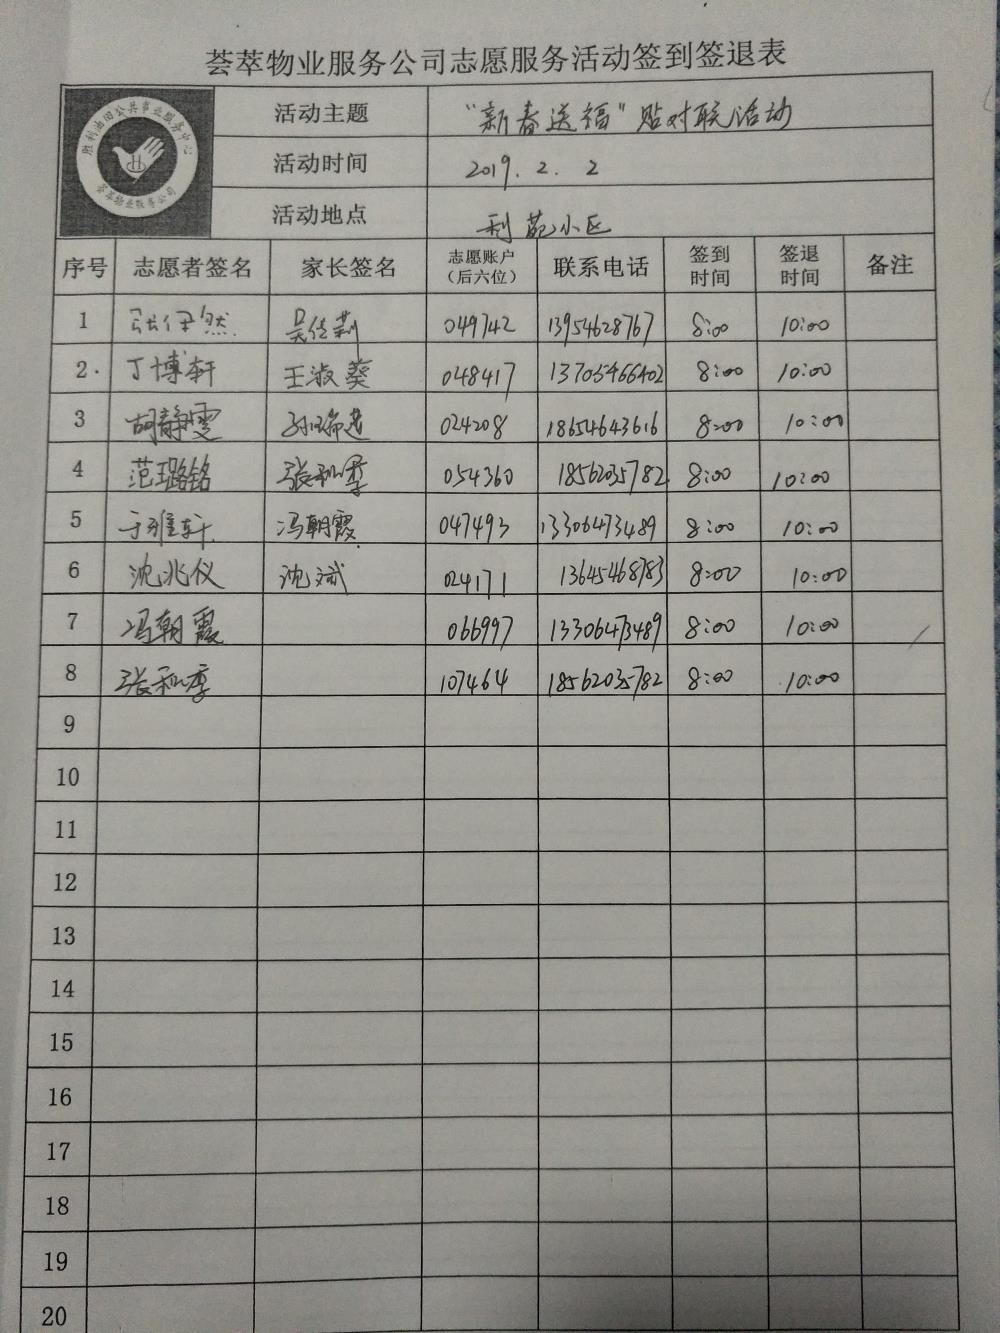 荟萃物业服务公司志愿服务活动签到签退表
胜利油田公共事业服务中心
荟萃物业服务公司
活动主题 "新春送福"贴对联活动
活动时间 2019. 2. 2
活动地点 利苑小区
序号 志愿者签名 家长签名 志愿账户(后六位) 联系电话 签到时间 签退时间 备注
1 张伊然 吴佳莉 049742 13954628767 8:00 10:00
2 丁博轩 王淑葵 048417 13705466402 8:00 10:00
3 胡静雯 孙瑞莲 024208 18654643616 8:00 10:00
4 范璐铭 张和季 054360 18562035782 8:00 10:00
5 于雅轩 冯朝霞 047493 13306473489 8:00 10:00
6 沈兆仪 沈斌 024171 13645468783 8:00 10:00
7 冯朝霞 066997 13306473489 8:00 10:00
8 张和季 107464 18562035782 8:00 10:00
9
10
11
12
13
14
15
16
17
18
19
20